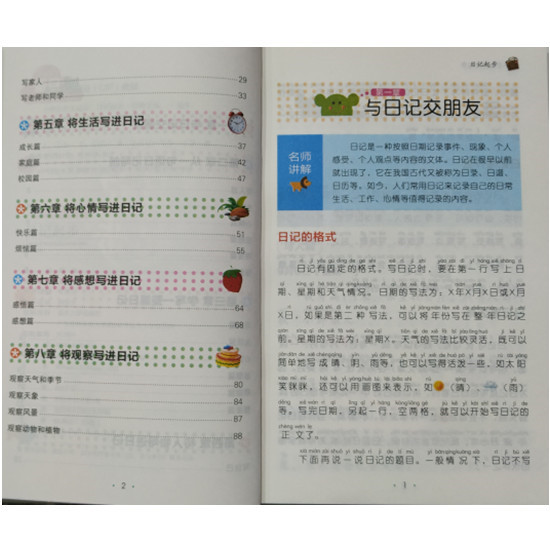 写家人 29
写老师和同学 33
第五章 将生活写进日记
成长篇 37
家庭篇 42
校园篇 47
第六章 将心情写进日记
快乐篇 51
烦恼篇 55
第七章 将感想写进日记
感悟篇 64
感想篇 68
第八章 将观察写进日记
观察天气和季节 80
观察天象 84
观察风景 87
观察动物和植物 88
· 2 ·
日记起步
第一章
与日记交朋友
名师
讲解
日记是一种按照日期记录事件、现象、个人
感受、个人观点等内容的文体。日记在很早以前
就出现了，它在我国古代又被称为日录、日谱、
日历等。如今，人们常用日记来记录自己的日常
生活、工作、心情等值得记录的内容。
日记的格式
日记有固定的格式。写日记时，要在第一行写上日
期、星期和天气情况。日期的写法为：X年X月X日或X月
X日。如果是第二种写法，可以将年份写在整年日记之
前。星期的写法为：星期X。天气的写法比较灵活，既可以
简单地写成晴、阴、雨等，也可以写得活泼一些，如太阳
笑咪咪，还可以用画图来表示，如（晴）、（雨）
等。写完日期，另起一行，空两格，就可以开始写日记的
正文了。
下面再说一说日记的题目。一般情况下，日记不写
· 1 ·